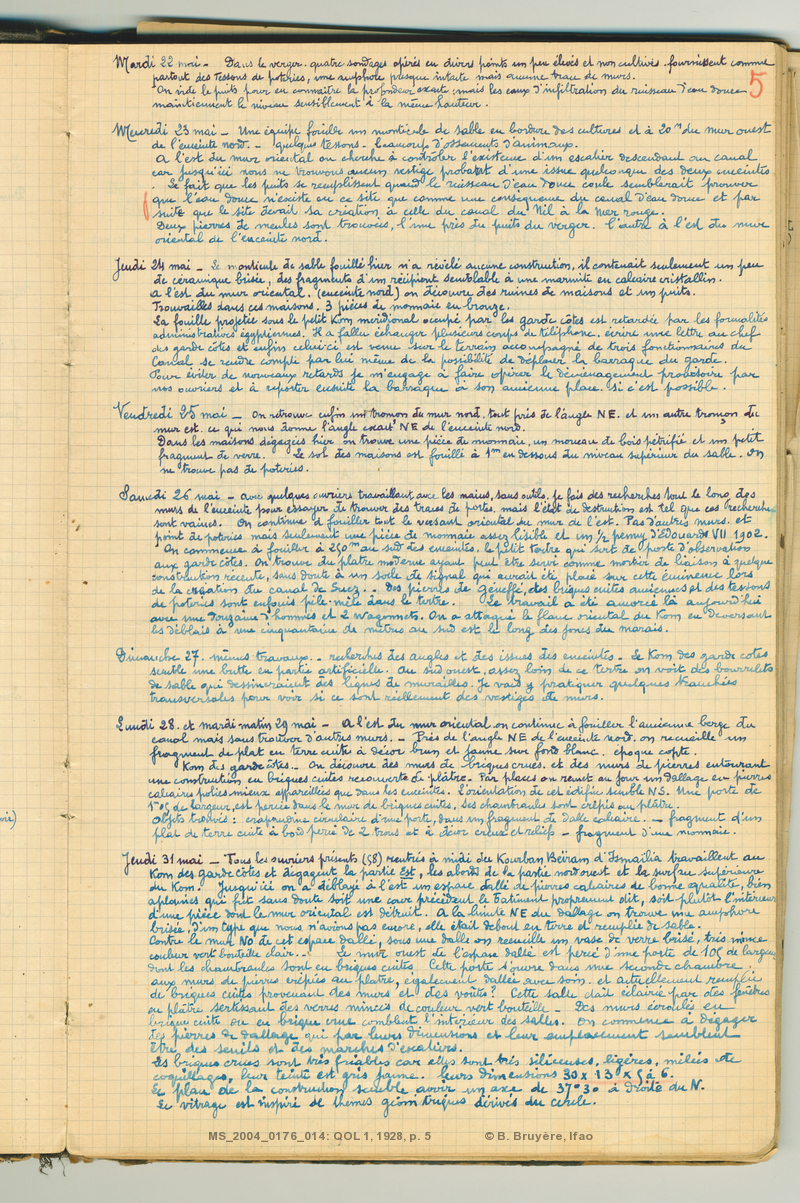 5
Mardi 22 mai - Dans le verger. quatre sondages opérés en divers points un peu élevés et non cultivés fournissent comme
partout des tessons de poteries, une amphore presque intacte mais aucune trace de murs.
On vide le puits pour en connaître la profondeur exacte; mais les eaux d'infiltration du ruisseau d'eau douce
maintiennent le niveau sensiblement à la même hauteur.
Mercredi 23 mai - Une équipe fouille un monticule de sable en bordure des cultures et à 20m du mur ouest
de l'enceinte nord. - quelques tessons - beaucoup d'ossements d'animaux.
A l'est du mur oriental on cherche à contrôler l'existence d'un escalier descendant au canal
car jusqu'ici nous ne trouvons aucun vestige probant d'une issue quelconque des deux enceintes.
Le fait que les puits se remplissent quand le ruisseau d'eau douce coule semblerait prouver
que l'eau douce n'existe en ce site que comme une conséquence du canal d'eau douce et par
suite que le site devait sa création à celle du canal du Nil à la Mer rouge.
Deux pierres de meules sont trouvées, l'une près du puits du verger. l'autre à l'est du mur
oriental de l'enceinte nord.
Jeudi 24 mai - Le monticule de sable fouillé hier n'a révélé aucune construction, il contenait seulement un peu
de céramique brisée, des fragments d'un récipient semblable à une marmite en calcaire cristallin.
A l'est du mur oriental, (enceinte nord) on découvre des ruines de maisons et un puits.
Trouvailles dans ces maisons. 3 pièces de monnaie en bronze.
La fouille projetée sous le petit Kom méridional occupé par les garde côtes est retardée par les formalités
administratives égyptiennes. Il a fallu échanger plusieurs coups de téléphone, écrire une lettre au chef
des garde côtes et enfin celui-ci est venu sur le terrain accompagné de trois fonctionnaires du
Canal se rendre compte par lui même de la possibilité de déplacer la baraque du garde.
Pour éviter de nouveaux retards je m'engage à faire opérer le déménagement provisoire par
nos ouvriers et à reporter ensuite la barraque à son ancienne place. si c'est possible.
Vendredi 25 mai - On retrouve enfin un tronçon du mur nord. tout près de l'angle NE. et un autre tronçon du
mur est. ce qui nous donne l'angle exact NE de l'enceinte nord.
Dans les maisons dégagées hier on trouve une pièce de monnaie, un morceau de bois pétrifié et un petit
fragment de verre. Le sol des maisons est fouillé à 1m en dessous du niveau supérieur du sable. On
ne trouve pas de poteries.
Samedi 26 mai - avec quelques ouvriers travaillant avec les mains, sans outils, je fais des recherches tout le long des
murs de l'enceinte pour essayer de trouver des traces de portes, mais l'état de destruction est tel que ces recherches
sont vaines. On continue à fouiller tout le versant oriental du mur de l'est. Pas d'autres murs. et
point de poteries mais seulement une pièce de monnaie assez lisible et un ½ penny d'Edouard VII 1902.
On commence à fouiller à 250m au sud des enceintes. le petit tertre qui sert de poste d'observation
aux garde côtes. On trouve du plâtre moderne ayant peut être servi comme mortier de liaison à quelque
construction récente, sans doute à un socle de signal qui aurait été placé sur cette éminence lors
de la création du canal de Suez. - Des pierres de Geneffé, des briques cuites anciennes et des tessons
de poteries sont enfouis pêle-mêle dans le tertre. Le travail a été amorcé là aujourd'hui
avec une douzaine d'hommes et 2 wagonnets. On a attaqué le flanc oriental du Kom en déversant
les déblais à une cinquantaine de mètres au sud est le long des joncs du marais.
Dimanche 27. mêmes travaux. - recherches des angles et des issues des enceintes. - Le Kom des garde côtes
semble une butte en partie artificielle. Au sud ouest, assez loin de ce tertre on voit des bourrelets
de sable qui dessineraient des lignes de murailles. Je vais y pratiquer quelques tranchées
transversales pour voir si ce sont réellement des vestiges de murs.
Lundi 28. et mardi matin 29 mai - A l'est du mur oriental on continue à fouiller l'ancienne berge du
canal mais sans trouver d'autres murs. - Près de l'angle NE de l'enceinte nord, on recueille un
fragment de plat en terre cuite à décor brun et jaune sur fond blanc. époque copte.
Kom des garde côtes. - On découvre des murs de briques crues, et des murs de pierres entourant
une construction en briques cuites recouverte de plâtre. Par places on remet au jour un dallage en pierres
calcaires polies mieux appareillées que dans les enceintes. L'orientation de cet édifice semble NS. Une porte de
1m05 de largeur, est percée dans le mur de briques cuites, ses chambranles sont crépis au plâtre.
Objets trouvés: crapaudine circulaire d'une porte, dans un fragment de dalle calcaire. - fragment d'un
plat de terre cuite à bord percé de 2 trous et à décor creux et reliefs - fragment d'une monnaie.
Jeudi 31 mai - Tous les ouvriers présents (58) rentrés à midi du Kourban Beïram d'Ismaïlia travaillent au
Kom des garde côtes et dégagent la partie Est, les abords de la partie nord ouest et la surface supérieure
du Kom. Jusqu'ici on a déblayé à l'est un espace dallé de pierres calcaires de bonne qualité, bien
aplanies qui fut sans doute soit une cour précédant le bâtiment proprement dit, soit plutôt l'intérieur
d'une pièce dont le mur oriental est détruit. A la limite NE du dallage on trouve une amphore
brisée, d'un type que nous n'avions pas encore, elle était debout en terre et remplie de sable.
Contre le mur NO de cet espace dallé, sous une dalle on recueille un vase de verre brisé, très mince
couleur vert bouteille clair. - Le mur ouest de l'espace dallé est percé d'une porte de 105 de largeur
dont les chambranles sont en briques cuites. Cette porte s'ouvre dans une seconde chambre
aux murs de pierres crépies au plâtre, également dallée avec soin. et actuellement remplie
de briques cuites provenant des murs et des voûtes? Cette salle était éclairée par des fenêtres
en plâtre sertissant des verres minces de couleur vert bouteille - Des murs écroulés en
brique cuite ou en brique crue comblent l'intérieur des salles. On commence à dégager
des pierres de dallage qui par leurs dimensions et leur emplacement semblent
être des seuils et des marches d'escaliers.
Les briques crues sont très friables car elles sont très siliceuses, légères, mêlées de
coquillages, leur teinte est gris jaune. leurs dimensions 30 x 13 x 5 à 6.
Le plan de la construction semble avoir un axe de 37°30 à droite du N.
Le vitrage est inspiré de thèmes géométriques dérivés du cercle.
MS_2004_0176_014: QOL 1, 1928, p. 5 © B. Bruyère, Ifao